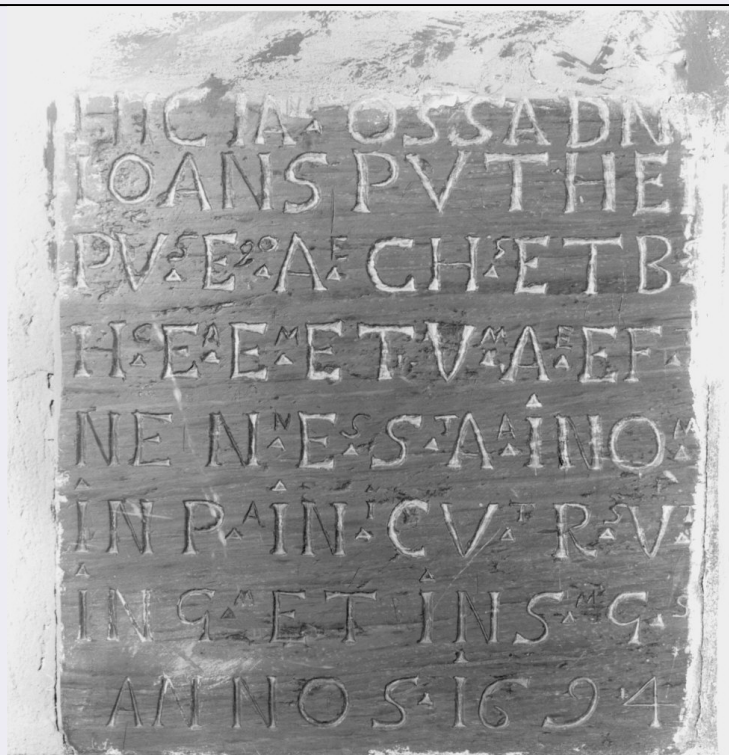 HIC IA · OSSA DN
IOANS PV THE
PV · E · A · CH · ET B
H · E · E · ET V · A · EF
NE N · E · S · A · INO
IN P · IN · CV · R · V
IN G · ET INS · G
ANNOS · 1694